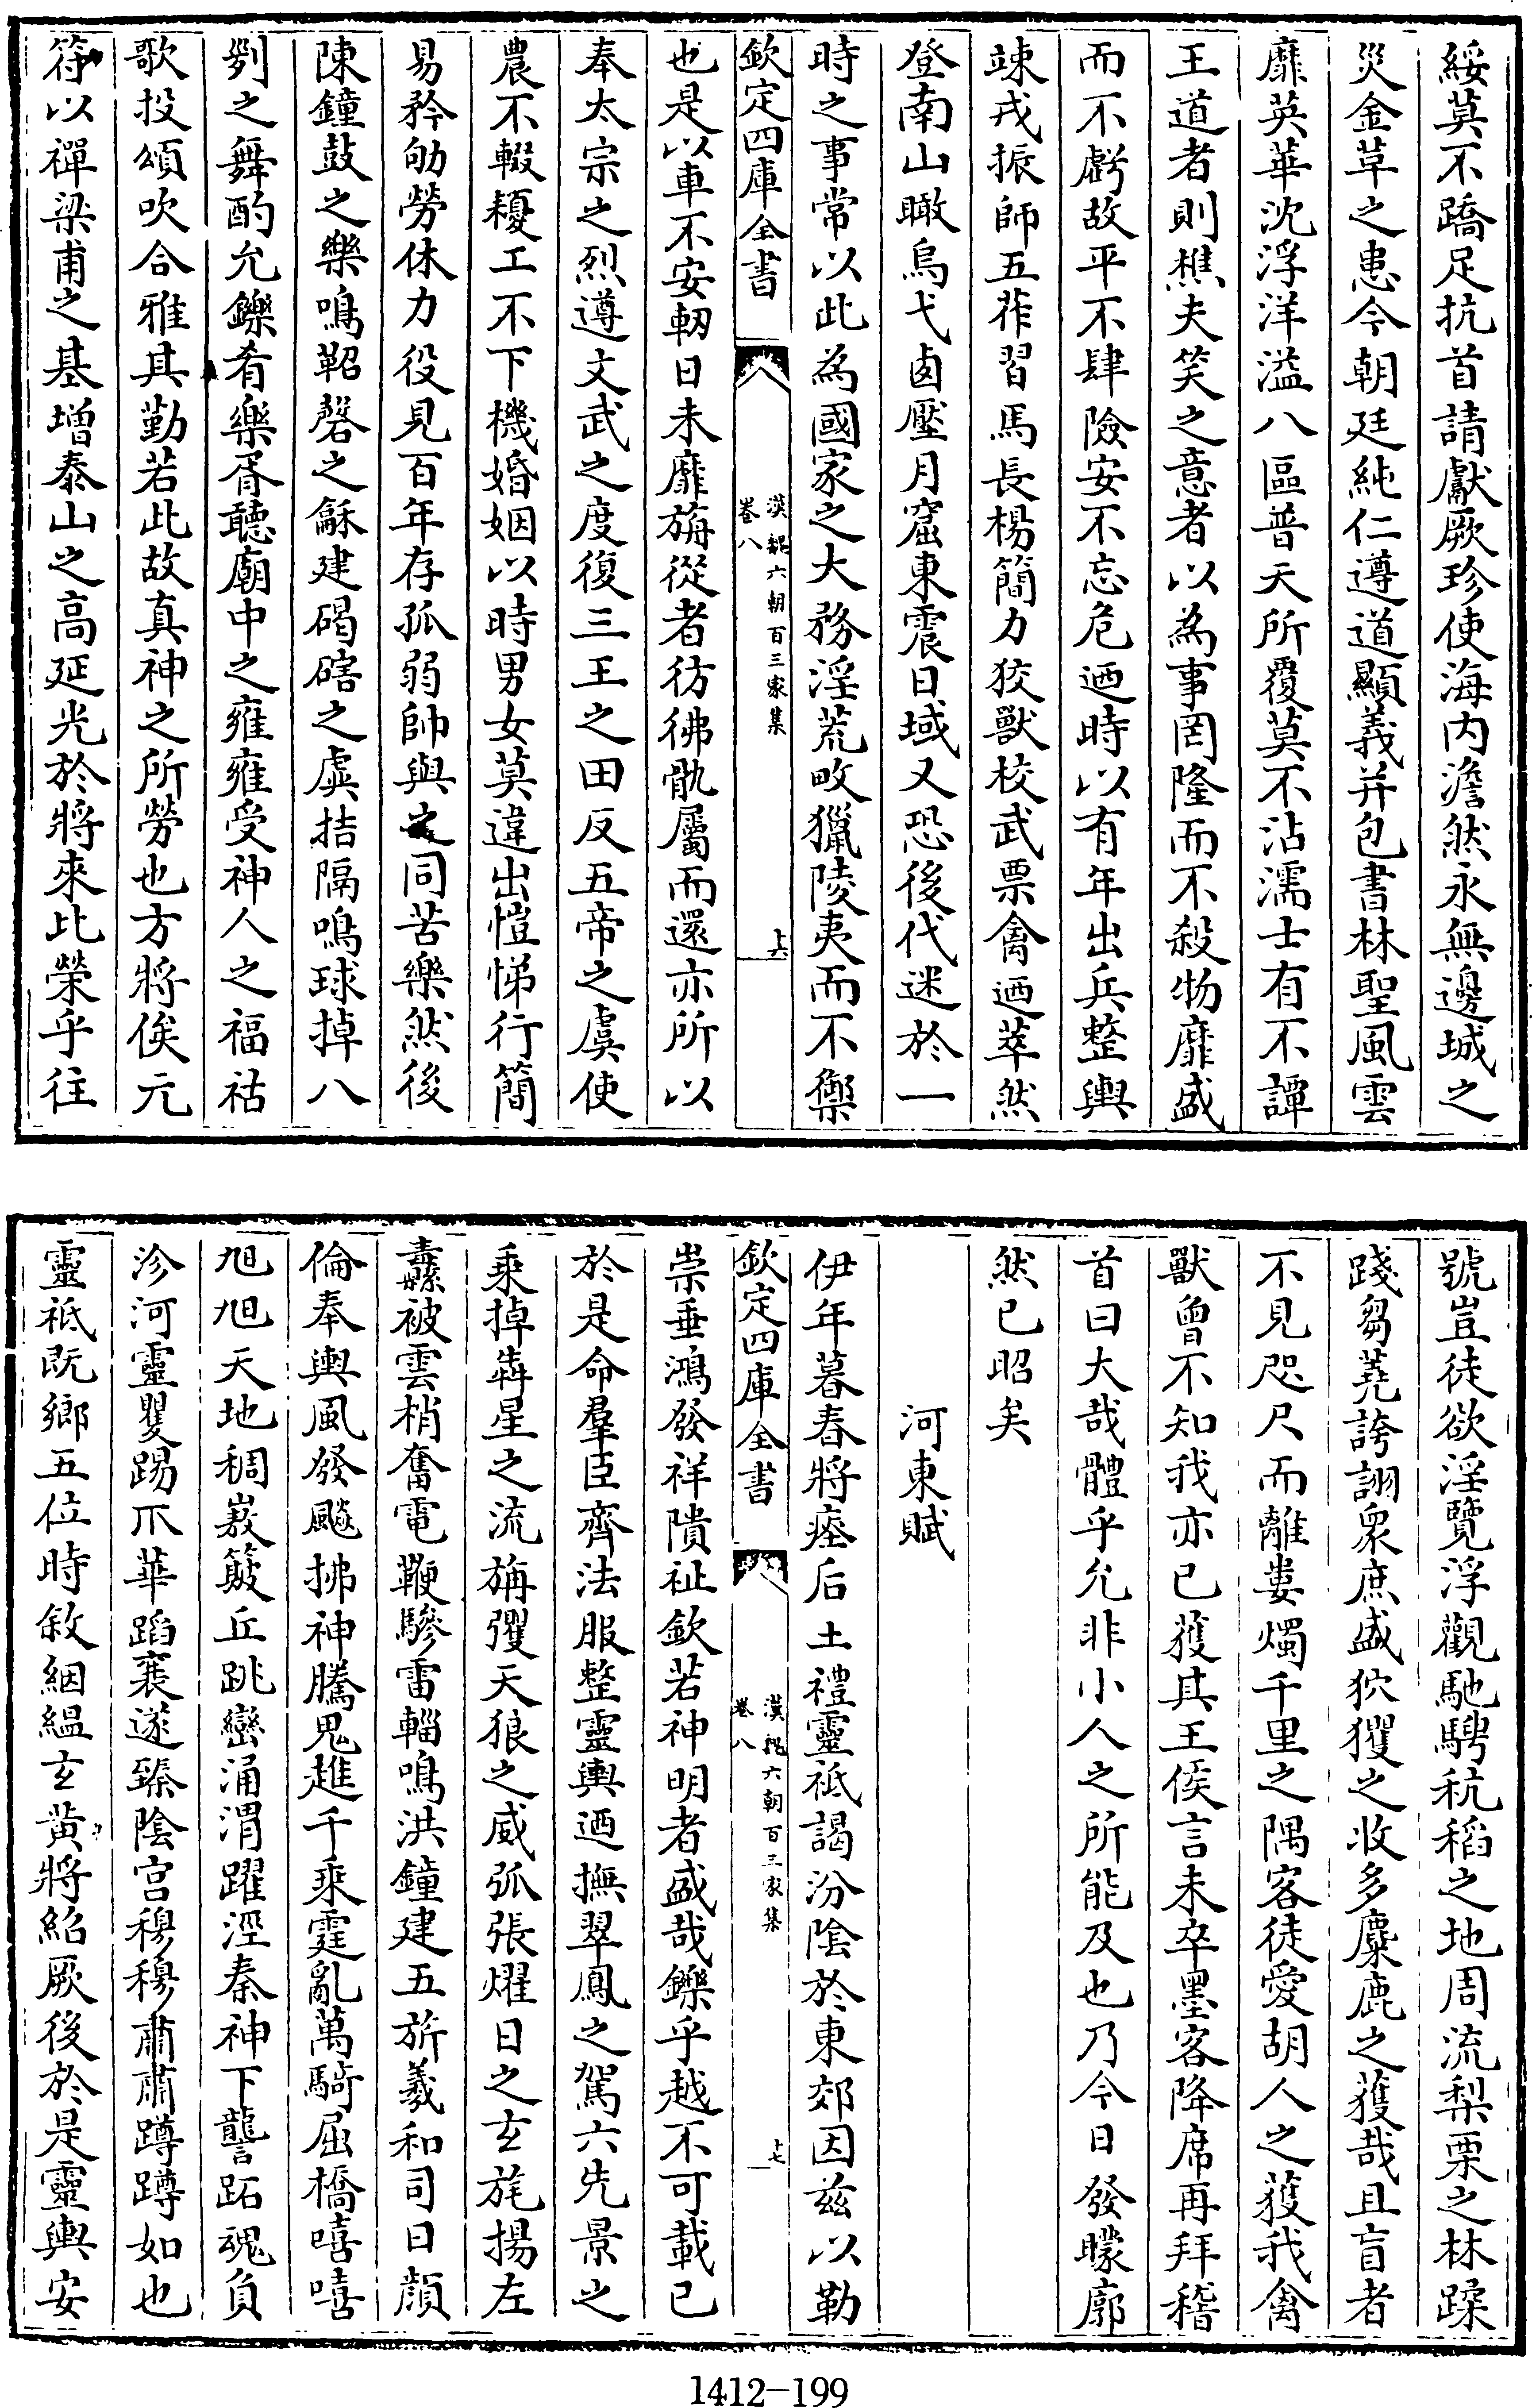 綏莫不蹻足抗首請獻厥珍使海内澹然永無邊城之
災金革之患今朝廷純仁遵道顯義并包書林聖風雲
靡英華沈浮洋溢八區普天所覆莫不沾濡士有不譚
王道者則樵夫笑之意者以為事罔隆而不殺物靡盛
而不虧故平不肆險安不忘危迺時以有年出兵整輿
竦戎振師五莋習馬長楊簡力狡獸校武票禽迺萃然
登南山瞰烏弋西壓月窟東震日域又恐後代迷於一
時之事常以此為國家之大務淫荒畋獵陵夷而不禦
欽定四庫全書 漢魏六朝百三家集 卷八 十六
也是以車不安軔日未靡旃從者彷彿骩屬而還亦所以
奉太宗之烈遵文武之度復三王之田反五帝之虞使
農不輟耰工不下機婚姻以時男女莫違出愷悌行簡
易矜劬勞休力役見百年存孤弱帥與之同苦樂然後
陳鐘鼓之樂鳴鞀磬之龢建碣磍之虡拮隔鳴球掉八
列之舞酌允鑠肴樂胥聽廟中之雍雍受神人之福祜
歌投頌吹合雅其勤若此故真神之所勞也方將俟元
符以禪梁甫之基增泰山之高延光於將來比榮乎往
號豈徒欲淫覽浮觀馳騁秔稻之地周流梨栗之林蹂
踐芻蕘誇詡衆庶盛狖玃之收多麋鹿之獲哉且盲者
不見咫尺而離婁燭千里之隅客徒愛胡人之獲我禽
獸曾不知我亦已獲其王侯言未卒墨客降席再拜稽
首曰大哉體乎允非小人之所能及也乃今日發矇廓
然已昭矣
河東賦
伊年暮春將瘞后土禮靈祇謁汾陰於東郊因兹以勒
欽定四庫全書 漢魏六朝百三家集 卷八 十七
崇垂鴻發祥隤祉欽若神明者盛哉鑠乎越不可載已
於是命羣臣齊法服整靈輿迺撫翠鳳之駕六先景之
乘掉犇星之流旃彏天狼之威弧張燿日之玄旄揚左
纛被雲梢奮電鞭驂雷輜鳴洪鐘建五旂羲和司日顔
倫奉輿風發飈拂神騰鬼趡千乘霆亂萬騎屈橋嘻嘻
旭旭天地稠㟼簸丘跳巒涌渭躍涇秦神下讋跖魂負
沴河靈矍踢爪華蹈襄遂臻陰宫穆穆肅肅蹲蹲如也
靈祇既鄉五位時敘絪縕玄黄將紹厥後於是靈輿安
1412-199